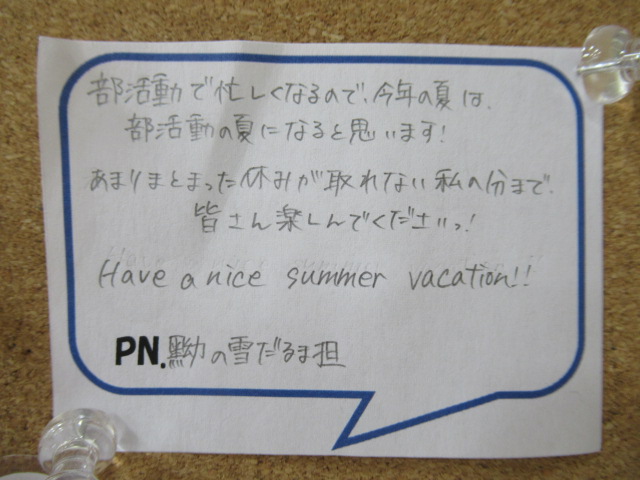 部活動で忙しくなるので、今年の夏は、
部活動の夏になると思います!
あまりまとまった休みが取れない私の分まで、
皆さん楽しんでくださいっ!
Have a nice summer vacation!!
PN.黝の雪だるま担